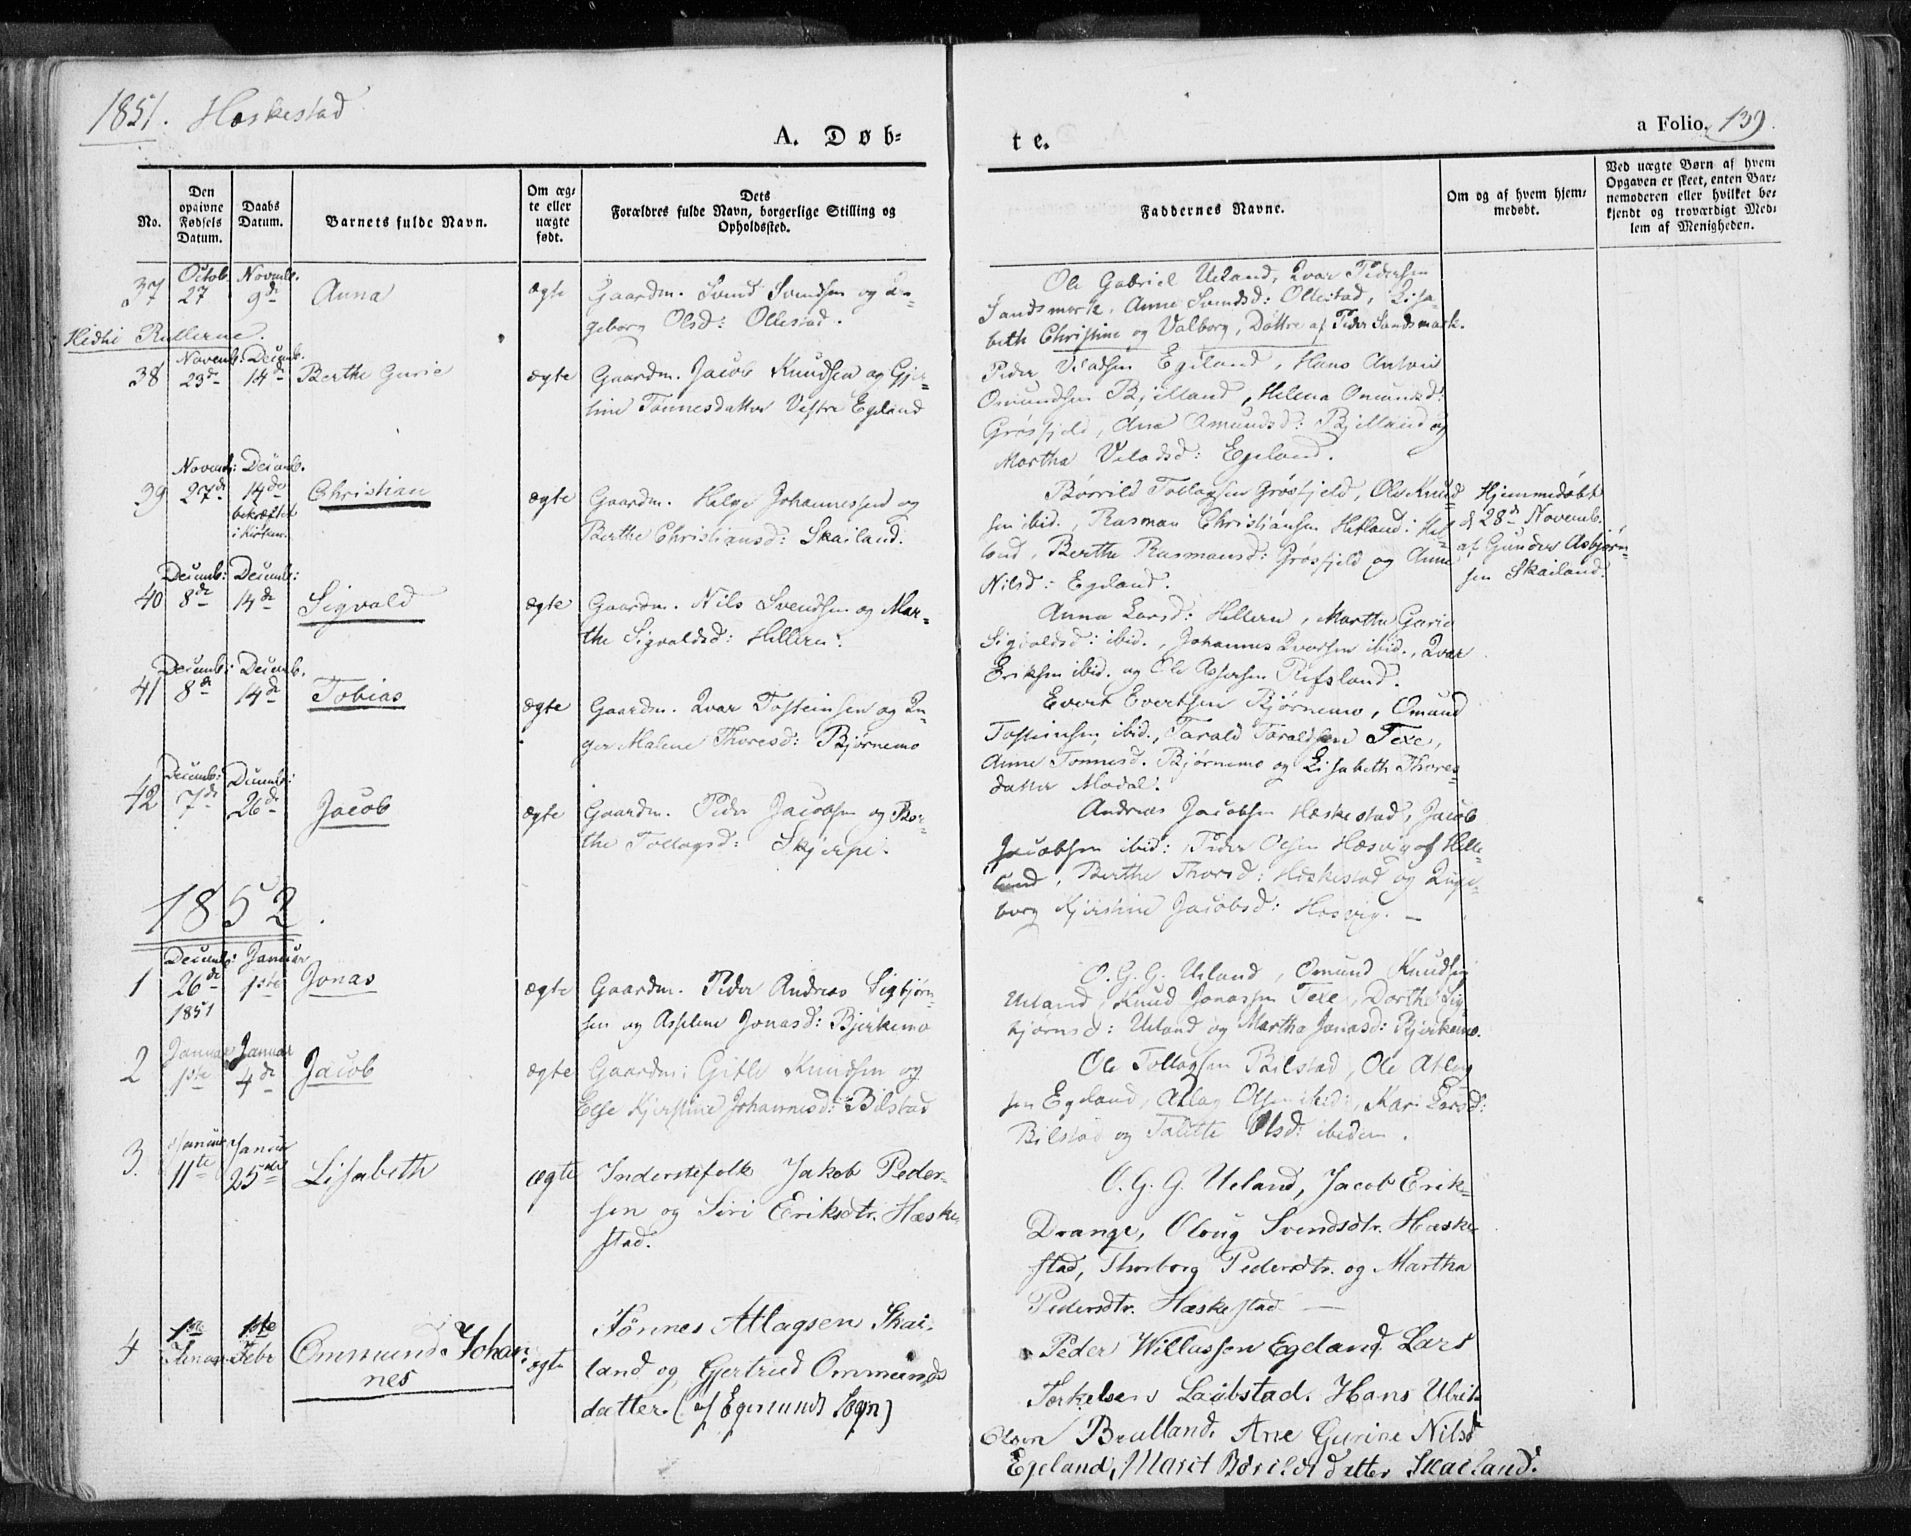 1851. Heskestad
A. Døb=
te.
a Folio. 139.
No.
Den opgivne Fødsels Datum.
Daabs Datum.
Barnets fulde Navn.
Om æg=
te eller
uægte
født.
Dets
Forældres fulde Navn, borgerlige Stilling og
Opholdssted.
Faddernes Navne.
Om og af hvem hjem=
medøbt.
Ved uægte Børn af hvem
Opgaven er skeet, enten Bar=
nemoderen eller hvilket be=
kjendt og troværdigt Med=
lem af Menigheden.
37 Octob. 27 Novemb. 9de Anna ægte Gaardm. Svend Svendsen og In=
geborg Olsd: Ollestad.
Ole Gabriel Ueland, Ivar Pedersen
Sandsmork, Anne Svendsd: Ollestad, Elisa=
beth Christine og Valborg, Døttre af Peder Sandsmark.
Hidtil Rullerne.
38 Novemb: 23de Decemb. 14de Berthe Gurie ægte Gaardm. Jacob Knudsen og Gjer=
tine Tønnesdatter Vestre Egeland
Peder Veladsen Egeland, Hans Antoni
Omundsen Bjelland, Helena Omundsd:
Grøsfjeld, Ane Omundsd: Bjelland og
Martha Veladsd: Egeland.
39 Novemb: 27de Decemb. 14de bekræftet i Kirken. Christian ægte Gaardm. Helge Johannessen og
Berthe Christiansd: Skailand.
Børrild Tollagsen Grøsfjeld, Ole Knud
sen ibid., Rasmus Christiansen Hetland: Hel=
land, Berthe Rasmusd: Grøsfjeld og Anne
Nilsd: Egeland.
Hjemmedøbt
d 28de Novemb.
af Gunder Asbjørn=
sen Skailand.
40 Decemb: 8de Decemb: 14de Sigvald ægte Gaardm. Nils Svendsen og Mar=
the Sigvaldsd: Helleren.
Anna Larsd: Helleren, Martha Gurie
Sigvaldsd: ibid., Johannes Ivarsen ibid., Ivar
Eriksen ibid. og Ole Assersen Refsland.
41 Decemb: 8de Decemb. 14de Tobias ægte Gaardm. Ivar Tosteinsen og In=
ger Malene Thoresd: Bjørnemo
Evert Evertsen Bjørnemo, Omund
Tosteinsen ibid., Tarald Taraldsen Texe,
Anne Tønnesd. Bjørnemo og Elisabeth Thores=
datter Modal.
42 Decemb: 7de Decemb: 26de Jacob ægte Gaardm. Peder Jacobsen og Ber=
the Tollagsd: Skjerpe.
Andreas Jacobsen Heskestad, Jacob
Jacobsen ibid: Peder Olsen Hæsvig af Helle=
land, Berthe Thorsd: Heskestad og Inge=
borg Kjerstine Jacobsd: Hæsvig. —
1852.
1 Decemb: 26de 1851 Januar 1ste Jonas ægte Gaardm. Peder Andreas Sigbjørn=
sen og Asseline Jonasd: Bjerkemo
O. G. G. Ueland, Omund Knudsen
Ueland, Knud Jonassen Texe, Dorthe Sig
bjørnsd: Ueland og Martha Jonasd: Bjerkemo.
2 Januar 1ste Januar 4de Jacob ægte Gaardm: Gitle Knudsen og
Else Kjerstine Johannesd: Bilstad
Ole Tollagsen Bilstad, Ole Atlag
sen Egeland, Atlag Olsen ibid:, Kari Larsd:
Bilstad og Talette Olsd: ibidem.
3. Januar 11te Januar 25de Lisabeth ægte Inderstefolk Jakob Peder=
sen og Siri Eriksdtr. Heske=
stad.
O. G. G. Ueland, Jacob Erik=
Drange, Oloug Svendsdtr. Heske
stad, Thorborg Pedersdtr. og Martha
Pedersdtr. Heskestad —
4 1ste Januar 1ste Febr Ommund Johan=
nes ægte Tønnes Atlagsen Skai=
land og Gjertrud Ommunds
datter. (af Egersunds Sogn)
Peder Willassen Egeland, Lars
Terkelsen Laubstad. Hans Ulrik
Olsen Bealland, Ane Gurine Nilsd
Egeland, Marit Børildsdatter Skailand.